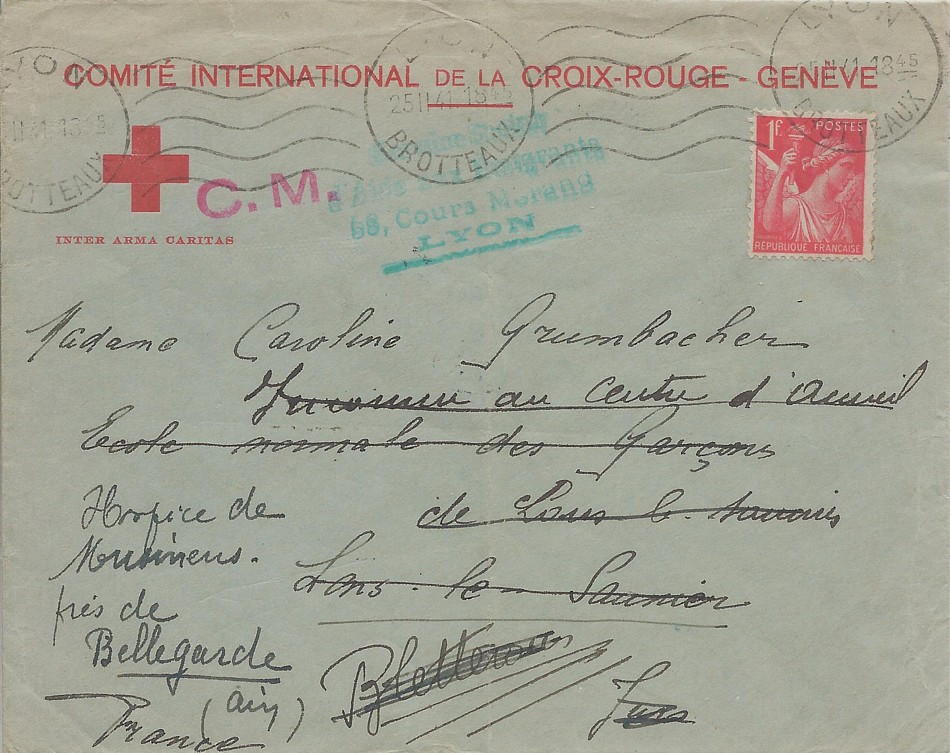 LYON
25 II 41 18 45
BROTTEAUX
LYON
25 II 41 18 45
BROTTEAUX
LYON
25 II 41 18 45
BROTTEAUX
COMITÉ INTERNATIONAL DE LA CROIX-ROUGE - GENÈVE
1F POSTES
RÉPUBLIQUE FRANÇAISE
C. M.
d'Aide aux Emigrants
68, Cours Morand
LYON
INTER ARMA CARITAS
Madame Caroline Grumbacher
au Centre d'Accueil
Ecole normale des Garçons
de Lons le Saunier
Lons-le-Saunier
Hospice de
Musinens.
près de
Bellegarde
(Ain)
France
Bletterans
Jura